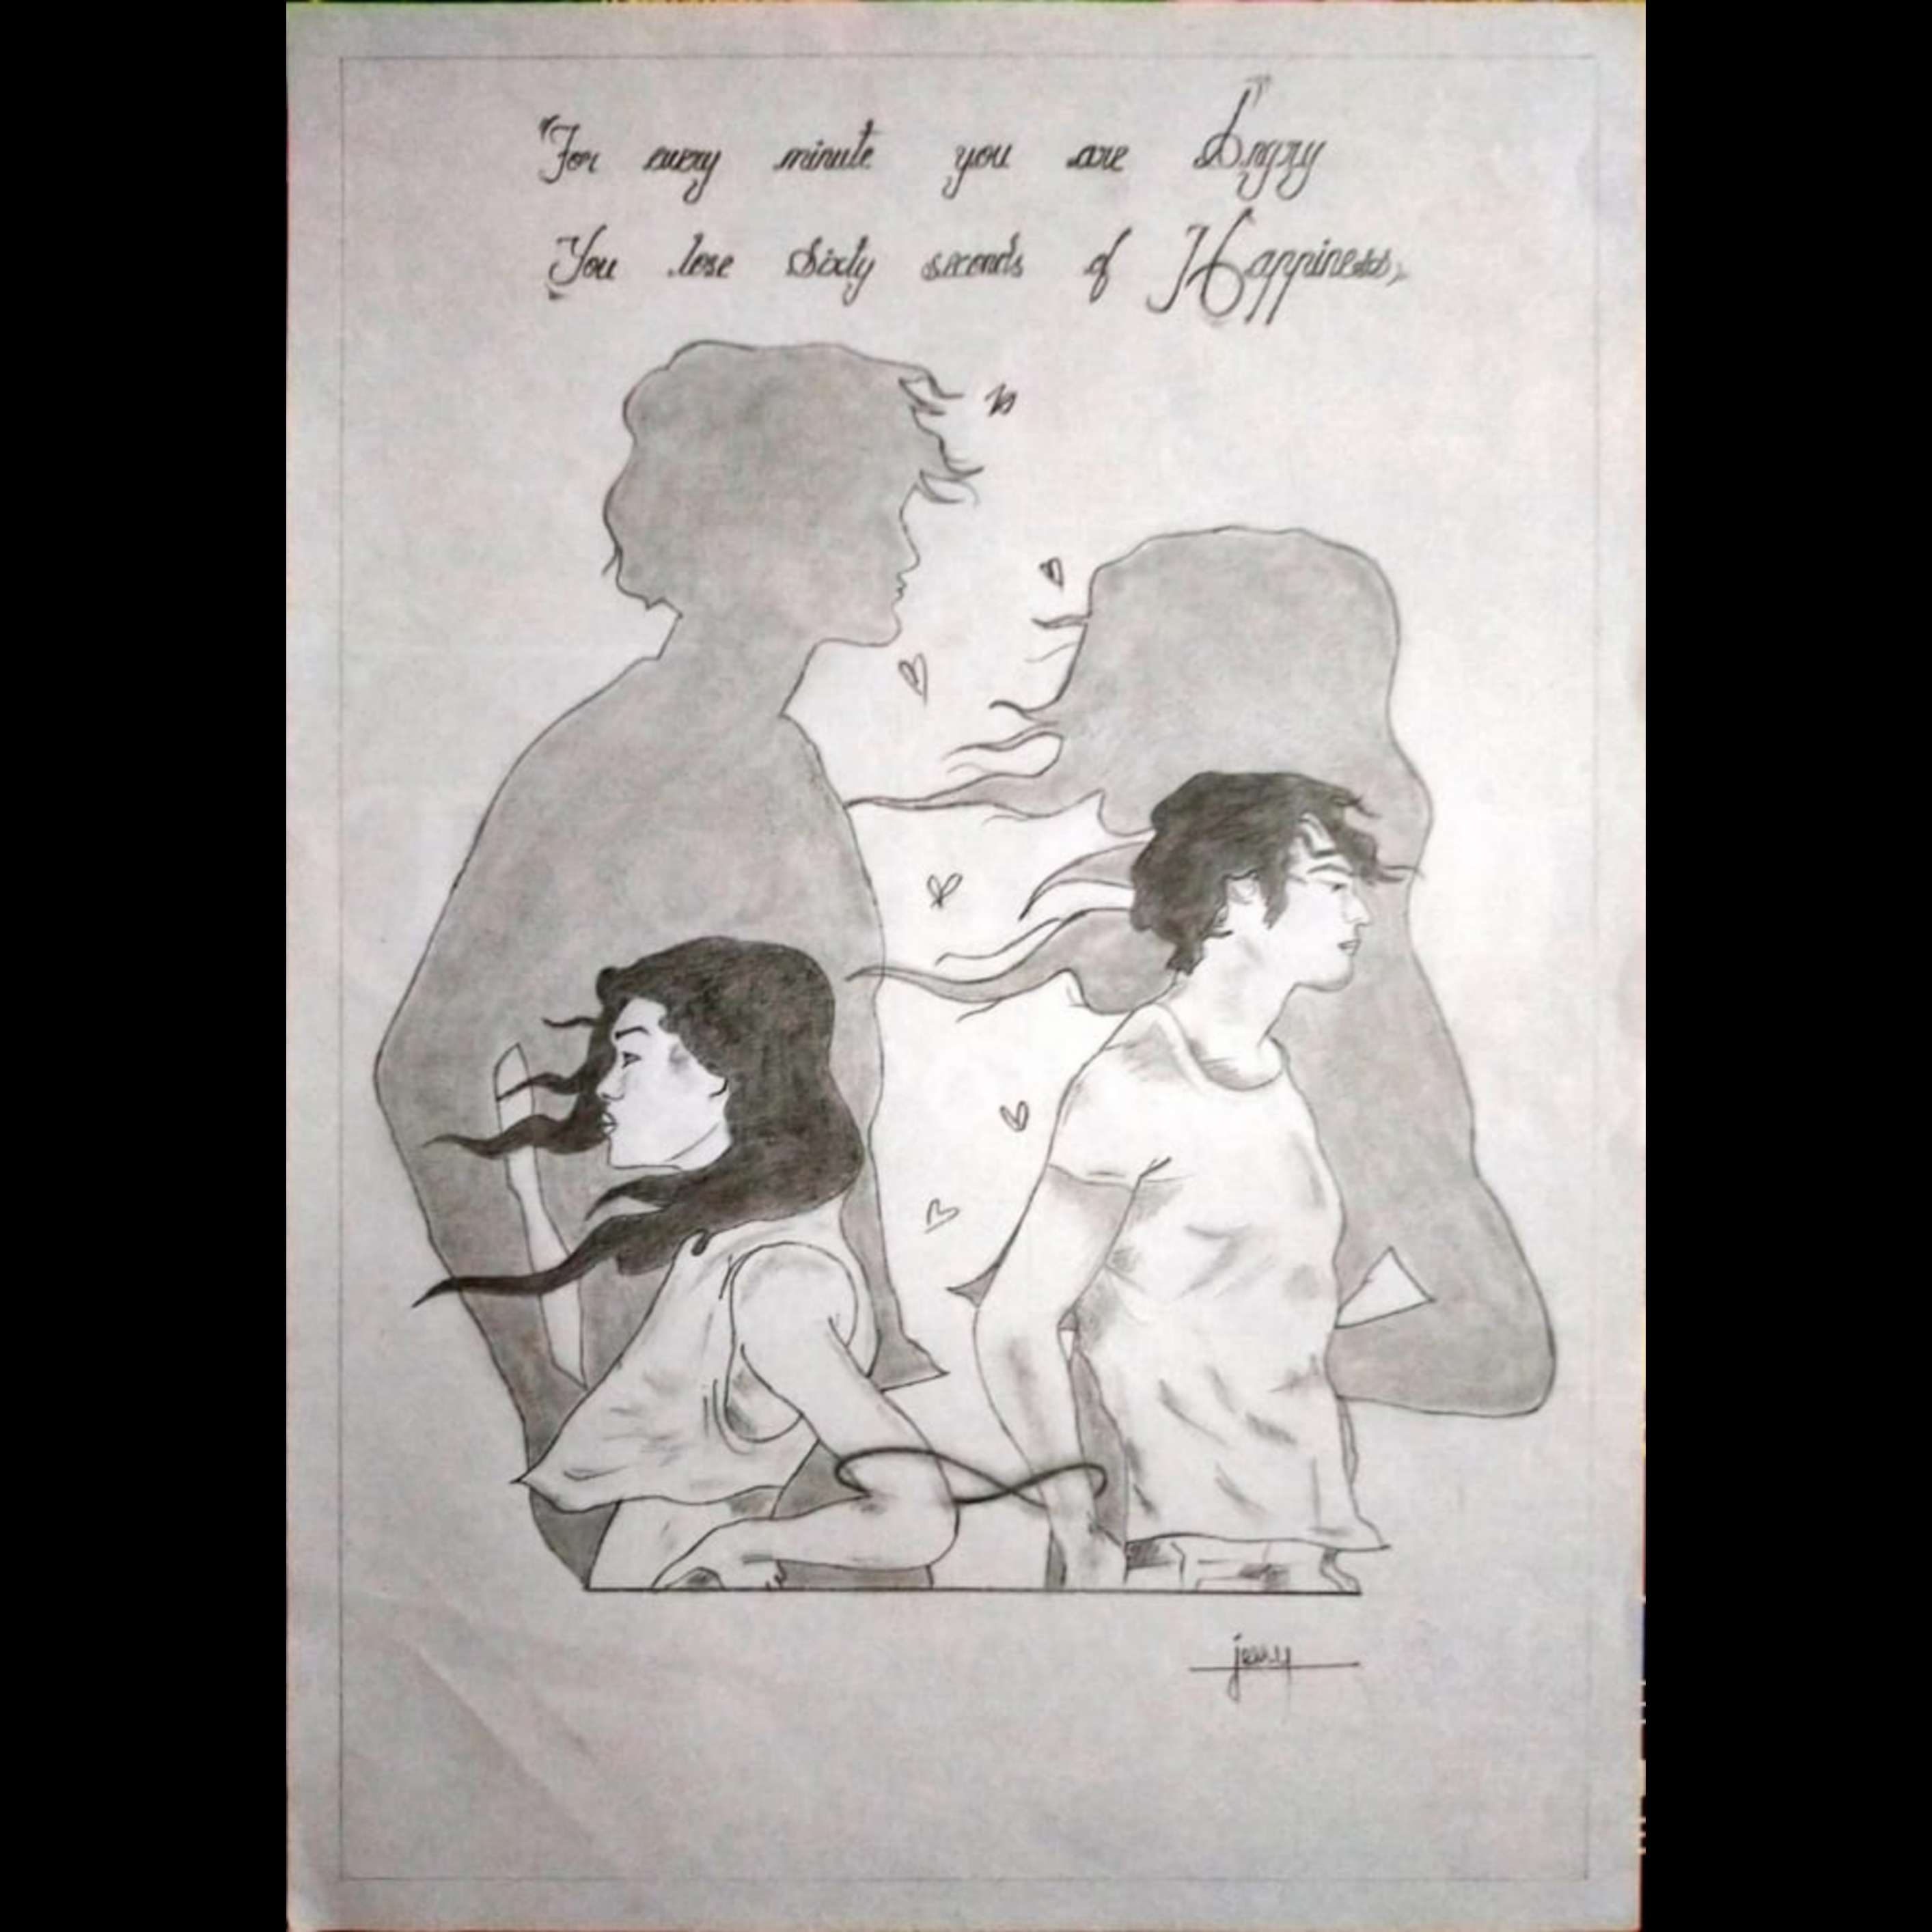 "For every minute you are Angry
You lose Sixty seconds of Happiness,
jerry